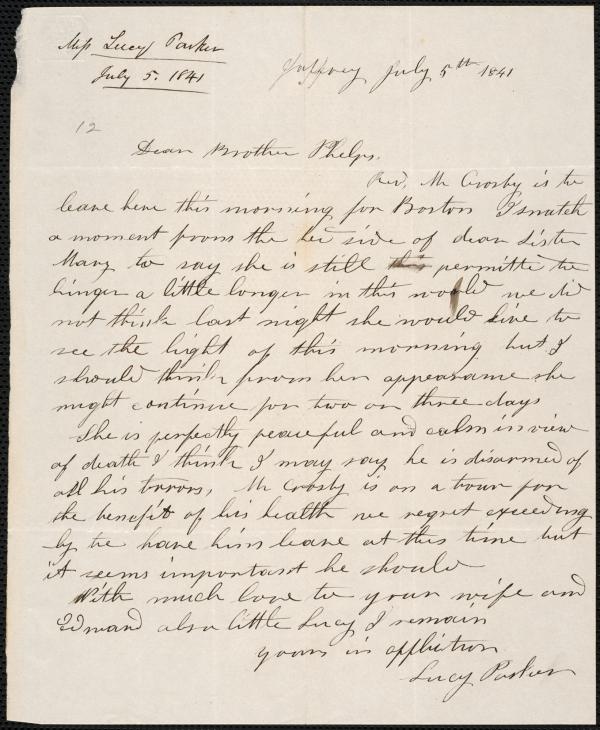 Miss Lucy Parker
July 5. 1841
Jaffrey July 5th 1841
12
Dear Brother Phelps,
Rev. Mr Crosby is to
leave here this morning for Boston I snatch
a moment from the bed side of dear Sister
Mary to say she is still this permitted to
linger a little longer in this world we did
not think last night she would live to
see the light of this morning but I
should think from her appearance she
might continue for two or three days
She is perfectly peaceful and calm in view
of death I think I may say he is disarmed of
all his terrors, Mr Crosby is on a tour for
the benefit of his health we regret exceeding
ly to have him leave at this time but
it seems important he should
With much love to your wife and
Edward also little Lucy I remain
yours in affliction
Lucy Parker